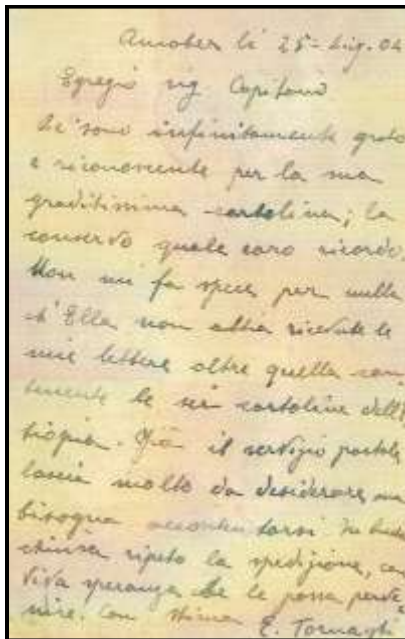 Ancober li 25 - Lug. 04
Egregio sig. Capitano
Le sono infinitamente grato
e riconoscente per la sua
graditissima cartolina; la
conservo quale caro ricordo.
Non mi fa specie per nulla
ch'Ella non abbia ricevute le
mie lettere oltre quella con
tenente le sei cartoline dell'E
tiopia. Già il servizio postale
lascia molto da desiderare, ma
bisogna accontentarsi. In busta
chiusa ripeto la spedizione, con
viva speranza che le possa perve
nire. Con stima E. Tornaghi